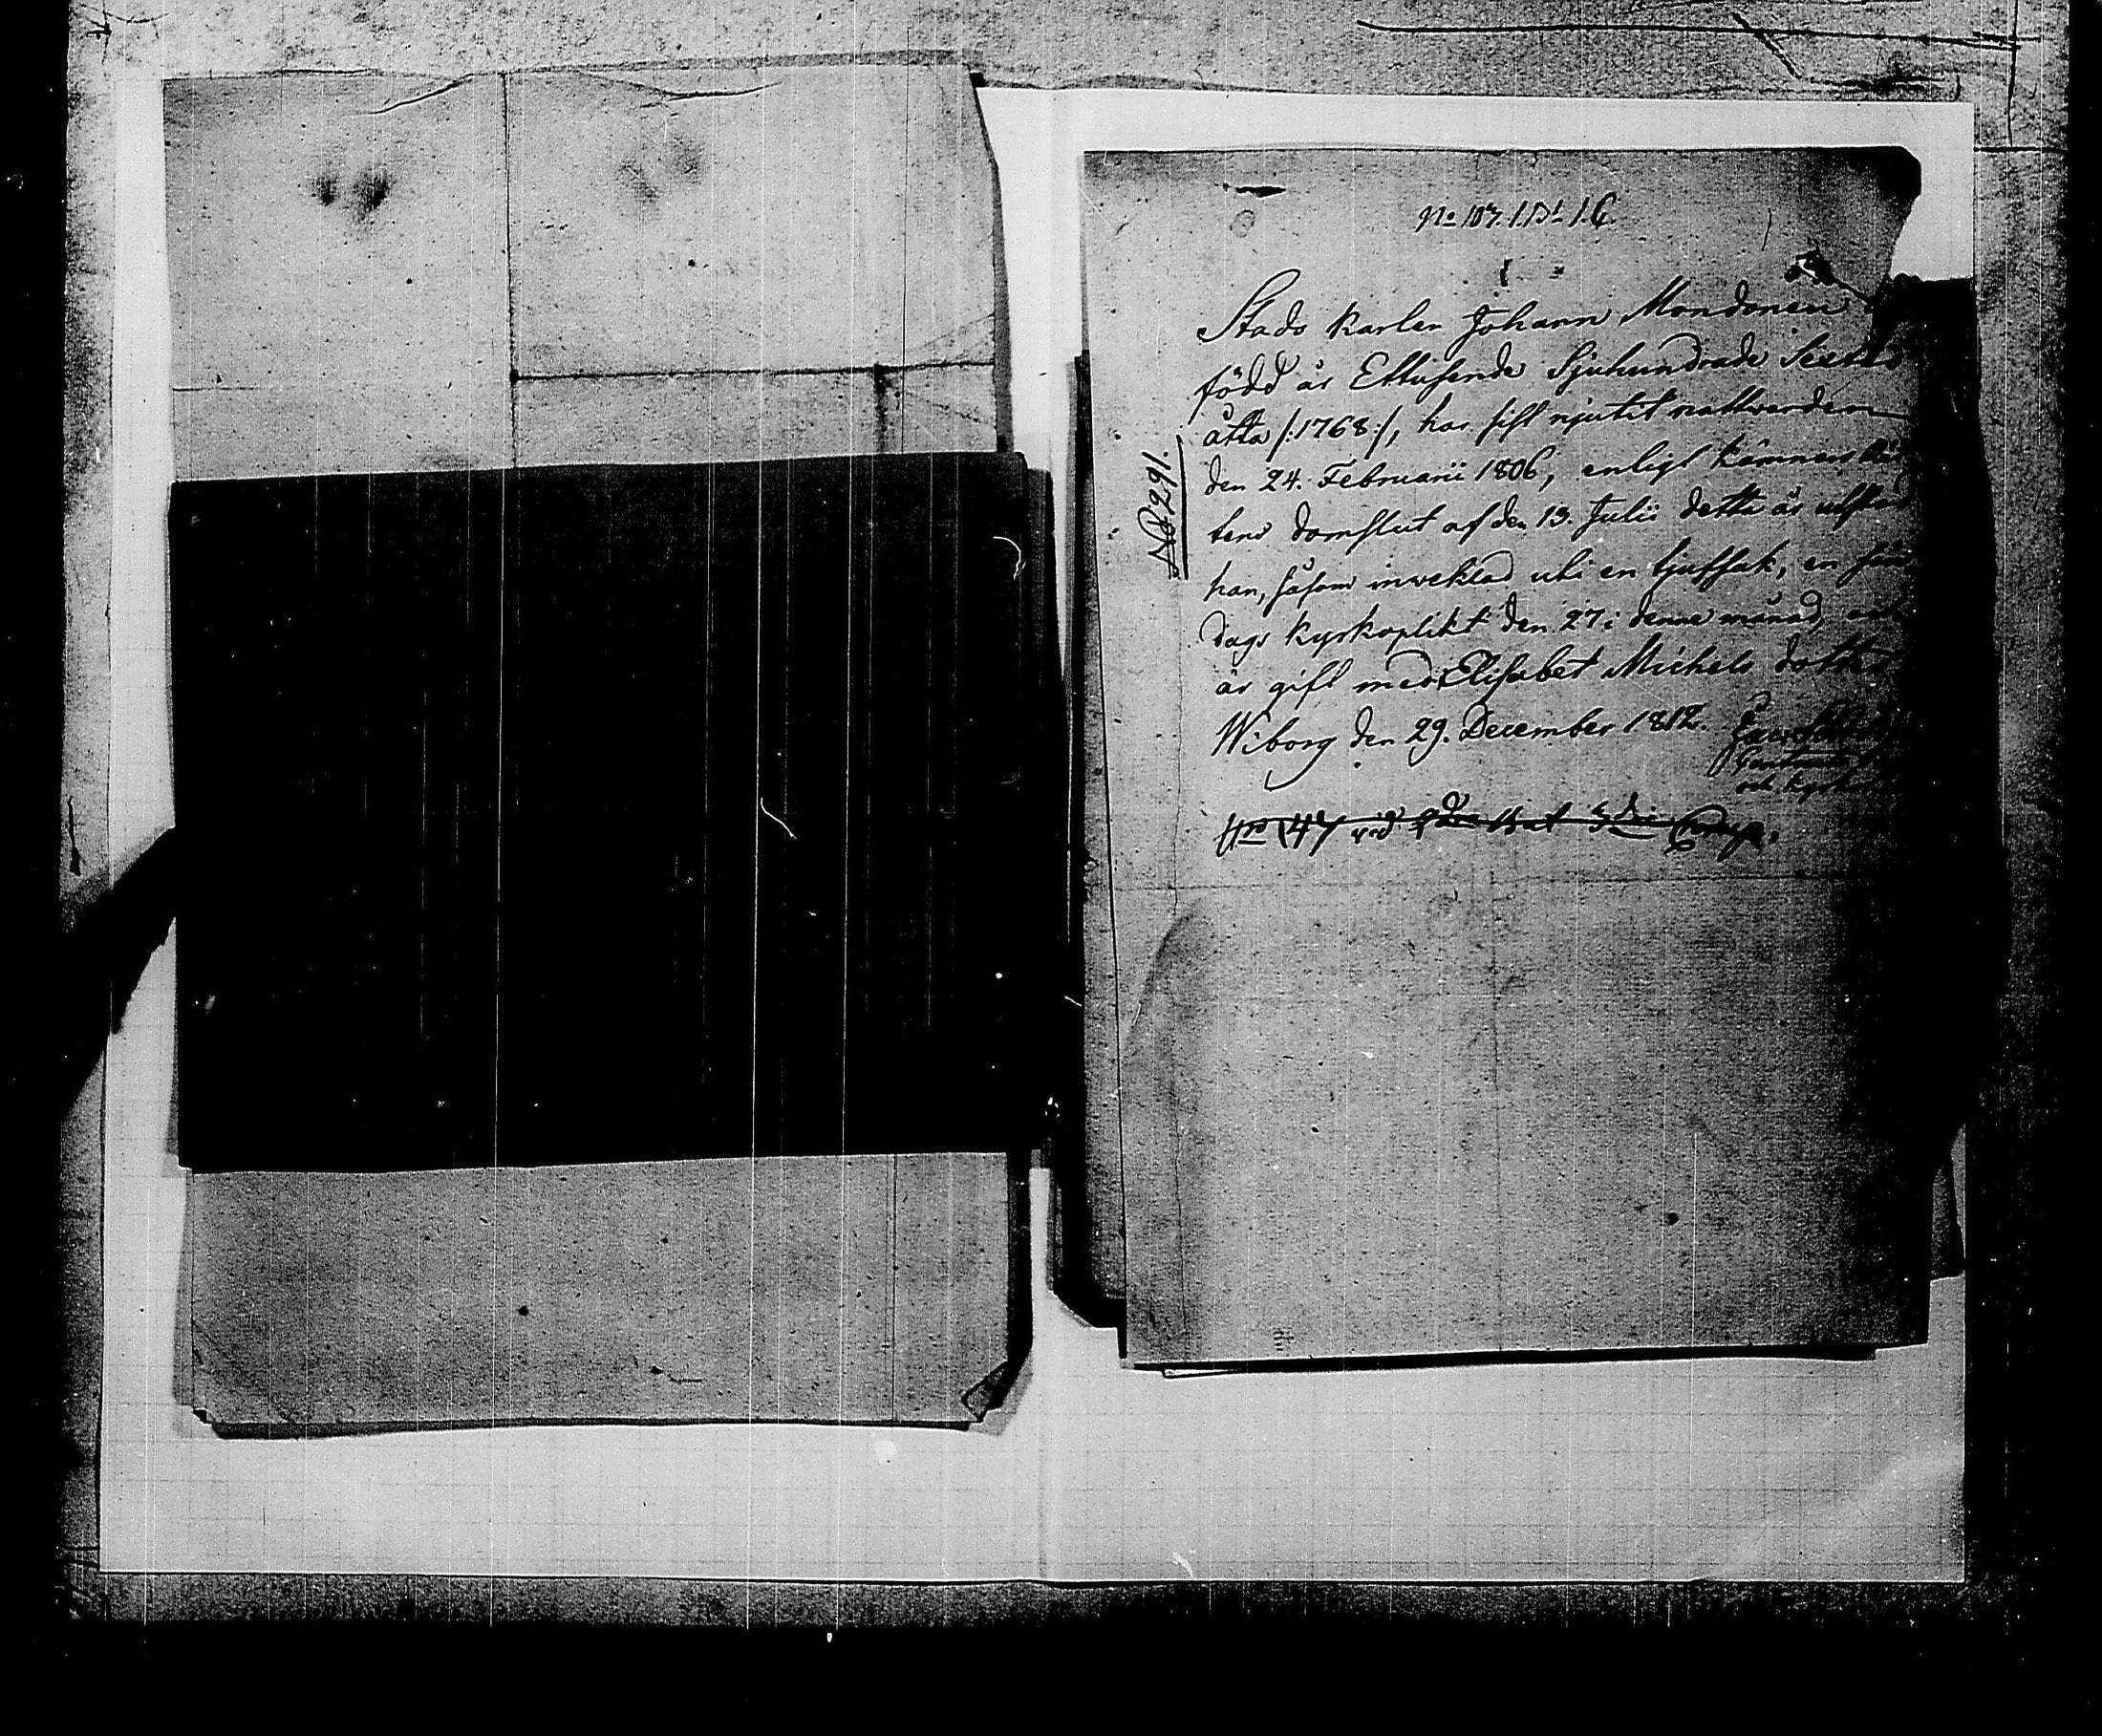 No 107. 1. Bt. 1. C.
Stads karlen Johann Mondonen
född år Ettusende Sjuhundrade Sextio
åtta /:1768:/, har sist njutit nattwarden
den 24. Februarii 1806, enligt Kämners Rät
tens domslut af den 13. Julii detta år utstod
han, såsom inweklad uti en tjufsak, en sön
dags kyrkoplikt den 27 i denne månad, och
är gift med Elisabet Michels dotter
Wiborg den 29. December 1812.
och kyrko
No 147 vid Bat 3die Comp.
No. 291.